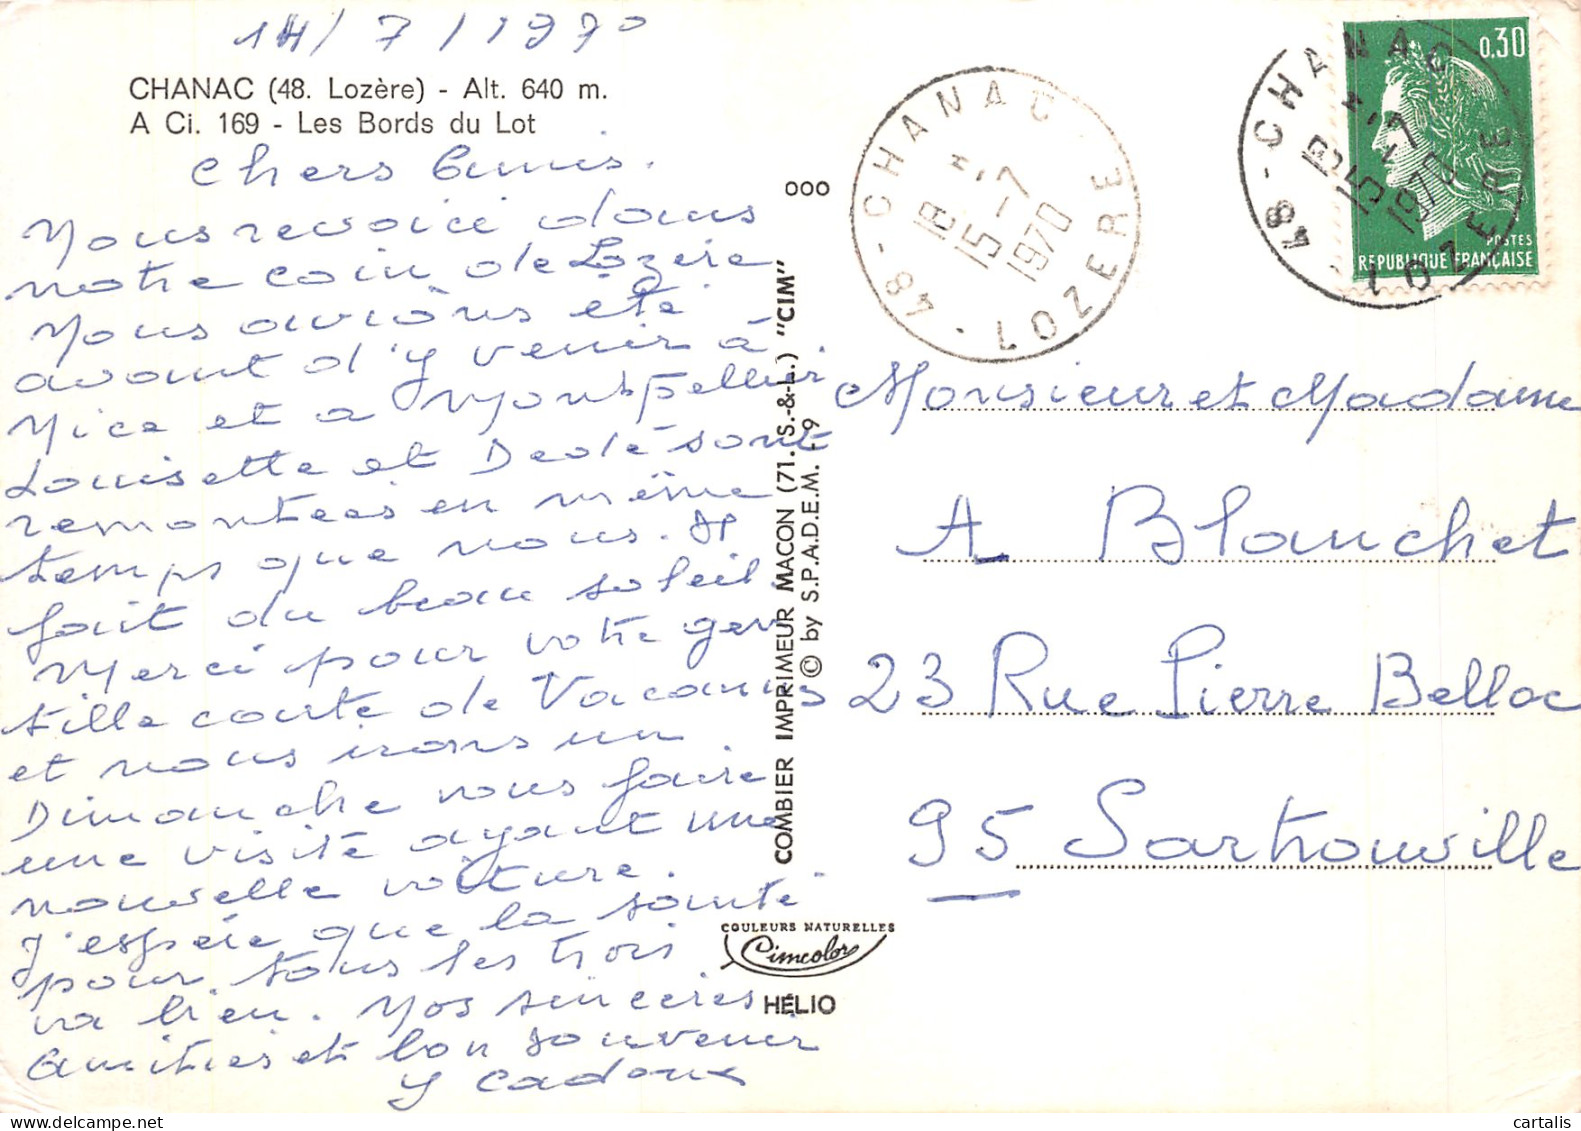 14/7/1970
CHANAC (48. Lozère) - Alt. 640 m.
A Ci. 169 - Les Bords du Lot
Chers Amis.
Nous revoici dans
notre coin de Lozère
Nous avions été
avant d'y venir à
Nice et à Montpellier.
Louisette et Dédé sont
remontées en même
temps que nous. Il
fait du beau soleil.
Merci pour votre gen
tille carte de Vacances
et nous irons un
Dimanche vous faire
une visite ayant une
nouvelle voiture.
J'espère que la santé
pour tous les trois
va bien. Nos sincères
amitiés et bon souvenir
Y Cadoux
000
COMBIER IMPRIMEUR MACON (71. S.-&-L.) "CIM"
© by S.P.A.D.E.M. F 9
COULEURS NATURELLES
Cimcolor
HÉLIO
48 - CHANAC - LOZERE
18 H
15 -7
1970
48 - CHANAC - LOZERE
18 H
15 -7
1970
0,30
POSTES
REPUBLIQUE FRANÇAISE
Monsieur et Madame
A Blanchet
23 Rue Pierre Belloc
95 Sartrouville